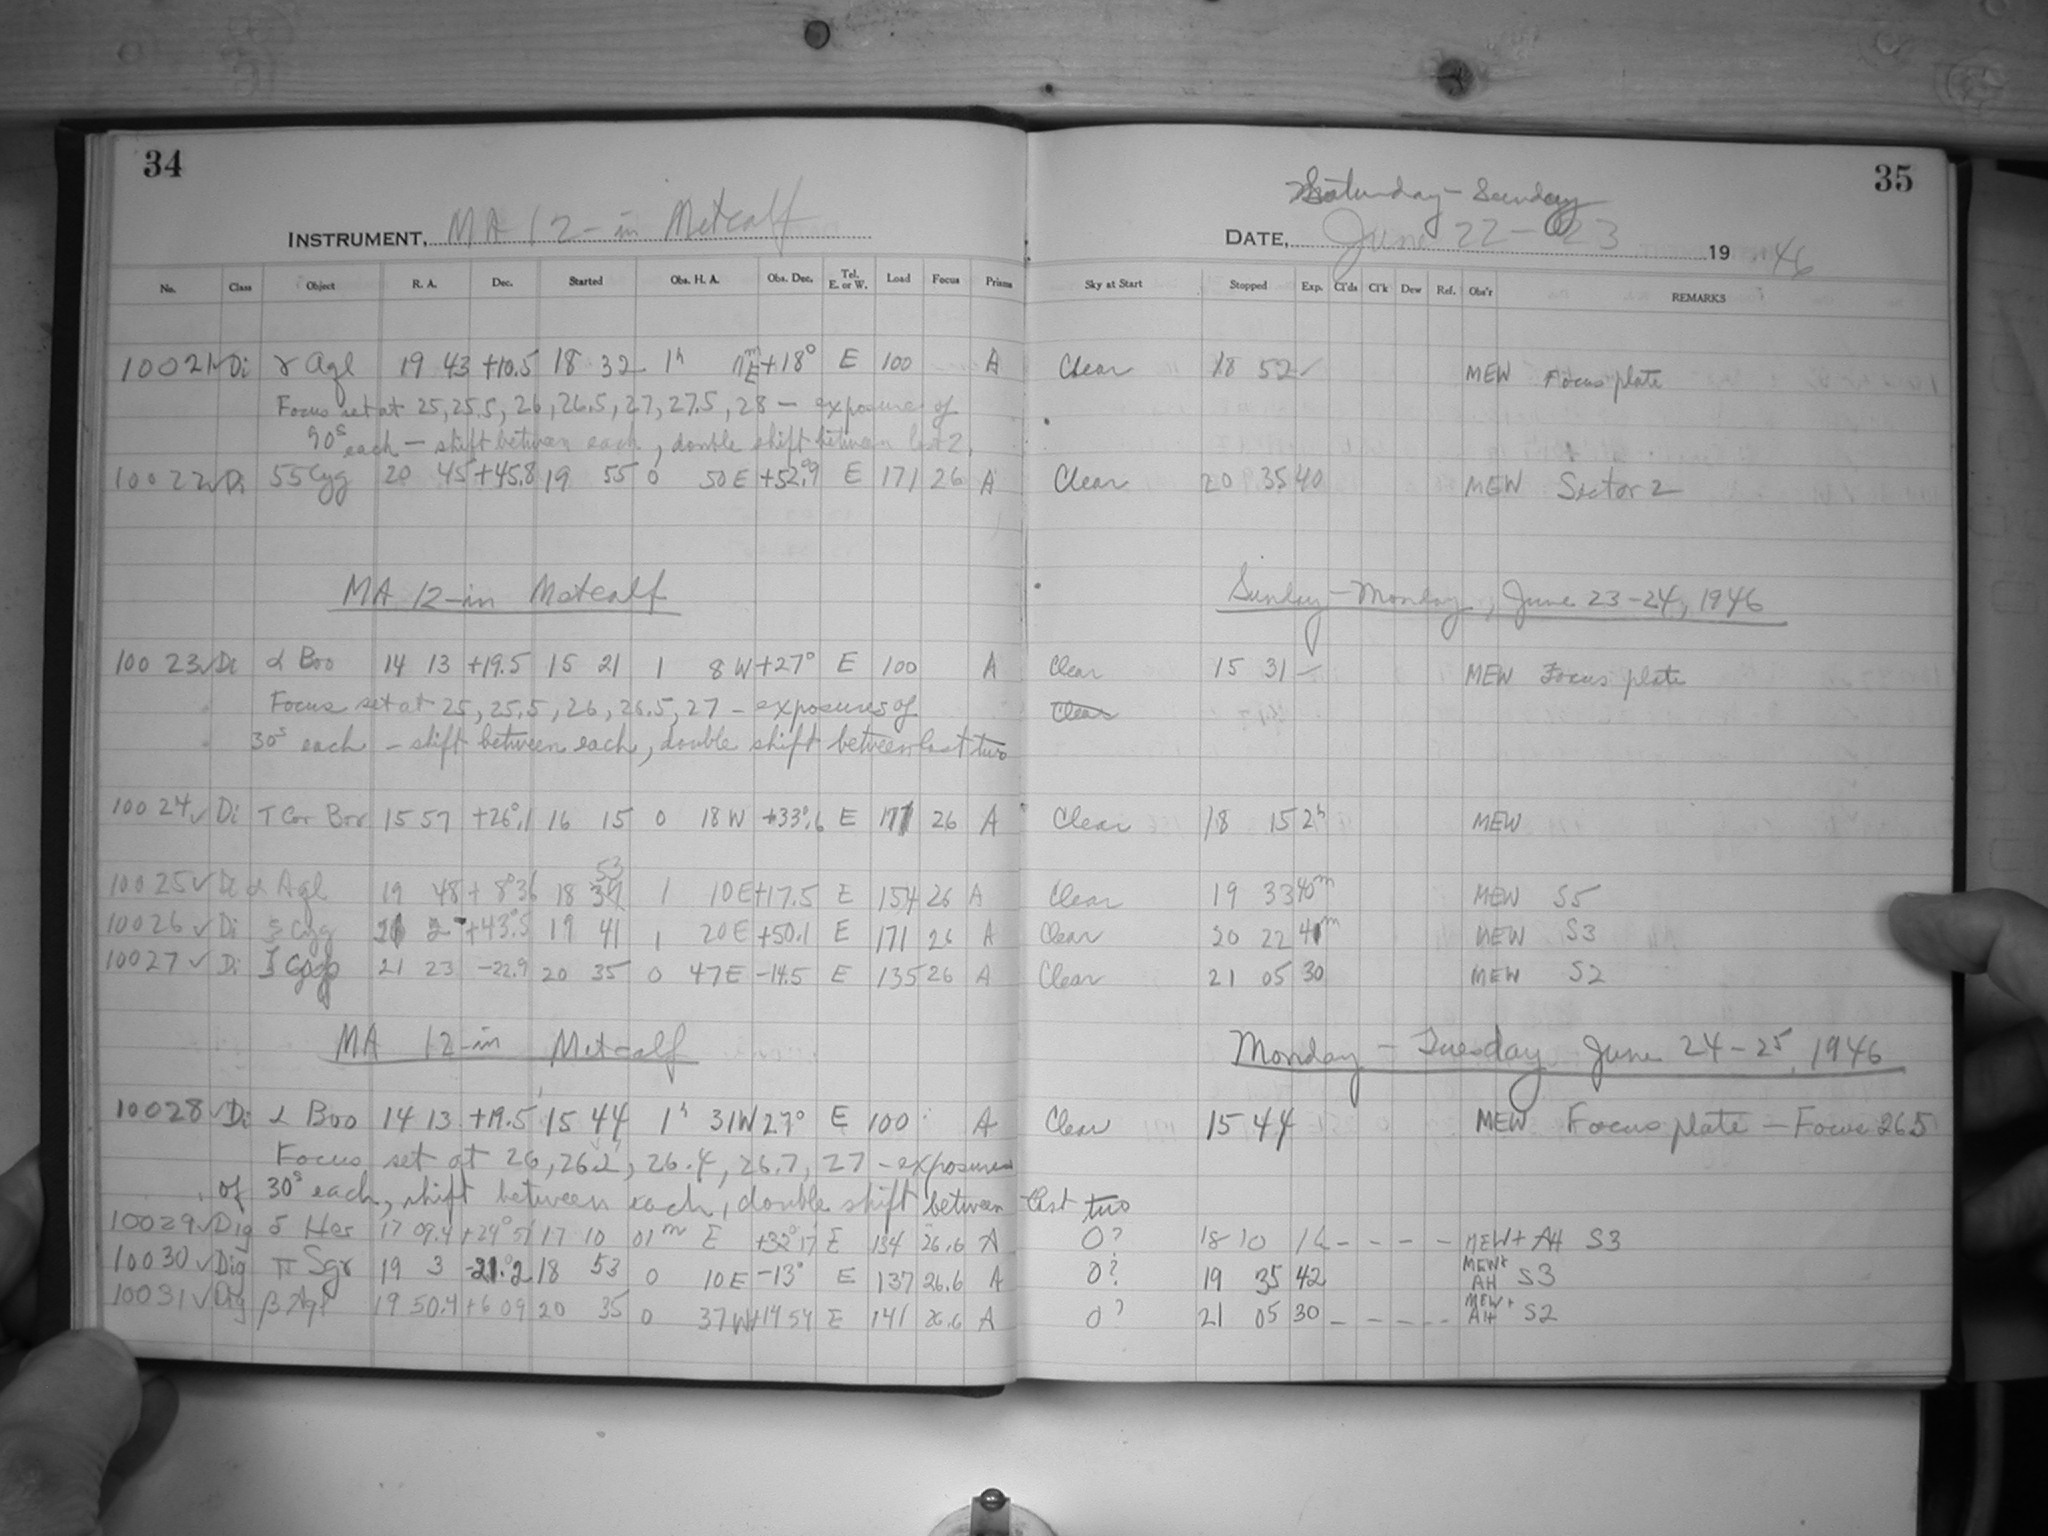 34
35
INSTRUMENT, MA 12-in Metcalf
Saturday - Sunday
DATE, June 22-23 1946
No. Class Object R. A. Dec. Started Obs. H. A. Obs. Dec. Tel. E. or W. Load Focus Prism Sky at Start Stopped Exp. Cl'ds Cl'k Dew Ref. Obs'r REMARKS
10021 ✓ Di γ Aql 19 43 +10.5 18 32 1h 11m E +18° E 100 A Clear 18 52 ✓ MEW Focus plate
Focus set at 25, 25.5, 26, 26.5, 27, 27.5, 28 — exposures of
90s each — shift between each, double shift between last 2.
10022 ✓ Di 55 Cyg 20 45 +45.8 19 55 0 50 E +52.9 E 171 26 A Clear 20 35 40 MEW Sector 2
MA 12-in Metcalf
Sunday - Monday, June 23-24, 1946
10023 ✓ Di α Boo 14 13 +19.5 15 21 1 8 W +27° E 100 A Clear 15 31 — MEW Focus plate
Focus set at 25, 25.5, 26, 26.5, 27 - exposures of Clear
30s each - shift between each, double shift between last two
10024 ✓ Di T Cor Bor 15 57 +26°.1 16 15 0 18 W +33°.6 E 171 26 A Clear 18 15 2h MEW
53
10025 ✓ Di α Aql 19 48 +8°36 18 1 10 E +17.5 E 154 26 A Clear 19 33 40m MEW S5
10026 ✓ Di ξ Cyg 21 2 +43°.5 19 41 1 20 E +50.1 E 171 26 A Clear 20 22 41m MEW S3
10027 ✓ Di ζ Cap 21 23 -22.9 20 35 0 47 E -14.5 E 135 26 A Clear 21 05 30 MEW S2
MA 12-in Metcalf
Monday - Tuesday June 24-25, 1946
10028 ✓ Di α Boo 14 13 +19.5 15 44 1h 31 W 27° E 100 A Clear 15 44 MEW Focus plate - Focus 26.5
Focus set at 26, 26.2, 26.4, 26.7, 27 - exposures
of 30s each, shift between each, double shift between last two
10029 ✓ Dig δ Her 17 09.4 +24° 51 17 10 01m E +32° 17 E 134 26.6 A 0? 18 10 1h - - - - MEW + AH S3
10030 ✓ Dig π Sgr 19 3 -21.°2 18 53 0 10 E -13° E 137 26.6 A 0? 19 35 42 MEW + AH S3
10031 ✓ Dig β Aql 19 50.4 +6 09 20 35 0 37 W +14 54 E 141 26.6 A 0? 21 05 30 - - - - - MEW + AH S2